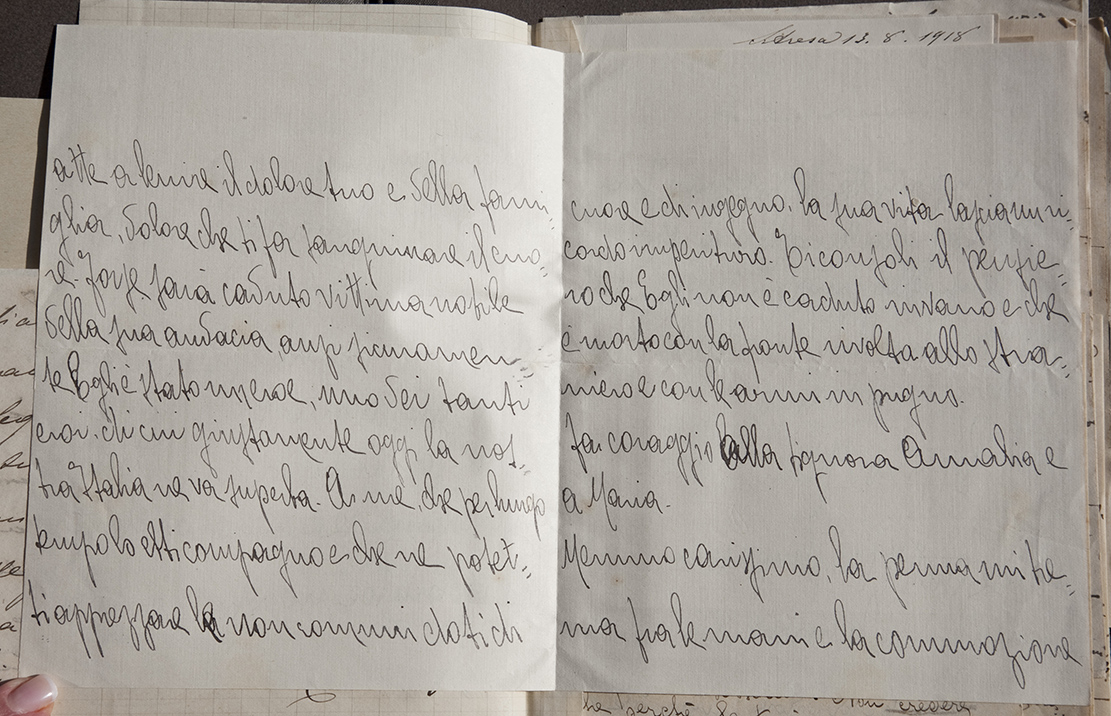 atte a lenire il dolore tuo e della fami=
glia, dolore che ti fa sanguinare il cuo=
re. Forse sarà caduto vittima nobile
della sua audacia, anzi sicuramen=
te Egli è stato un eroe, uno dei tanti
eroi, di cui giustamente oggi la nos=
tra Italia ne va superba. A me, che per lungo
tempo lo ebbi compagno e che ne potet=
ti apprezzare le non comuni doti di
Stresa 13. 8. 1918
cuore e di ingegno, la sua vita lascia un ri=
cordo imperituro. Ti consoli il pensie=
ro che Egli non è caduto invano e che
è morto con la fronte rivolta allo stra=
niero e con le armi in pugno.
Fai coraggio alla signora Amalia e
a Maria.
Memmo carissimo, la penna mi tre=
ma fra le mani e la commozione
che perchè
non credere